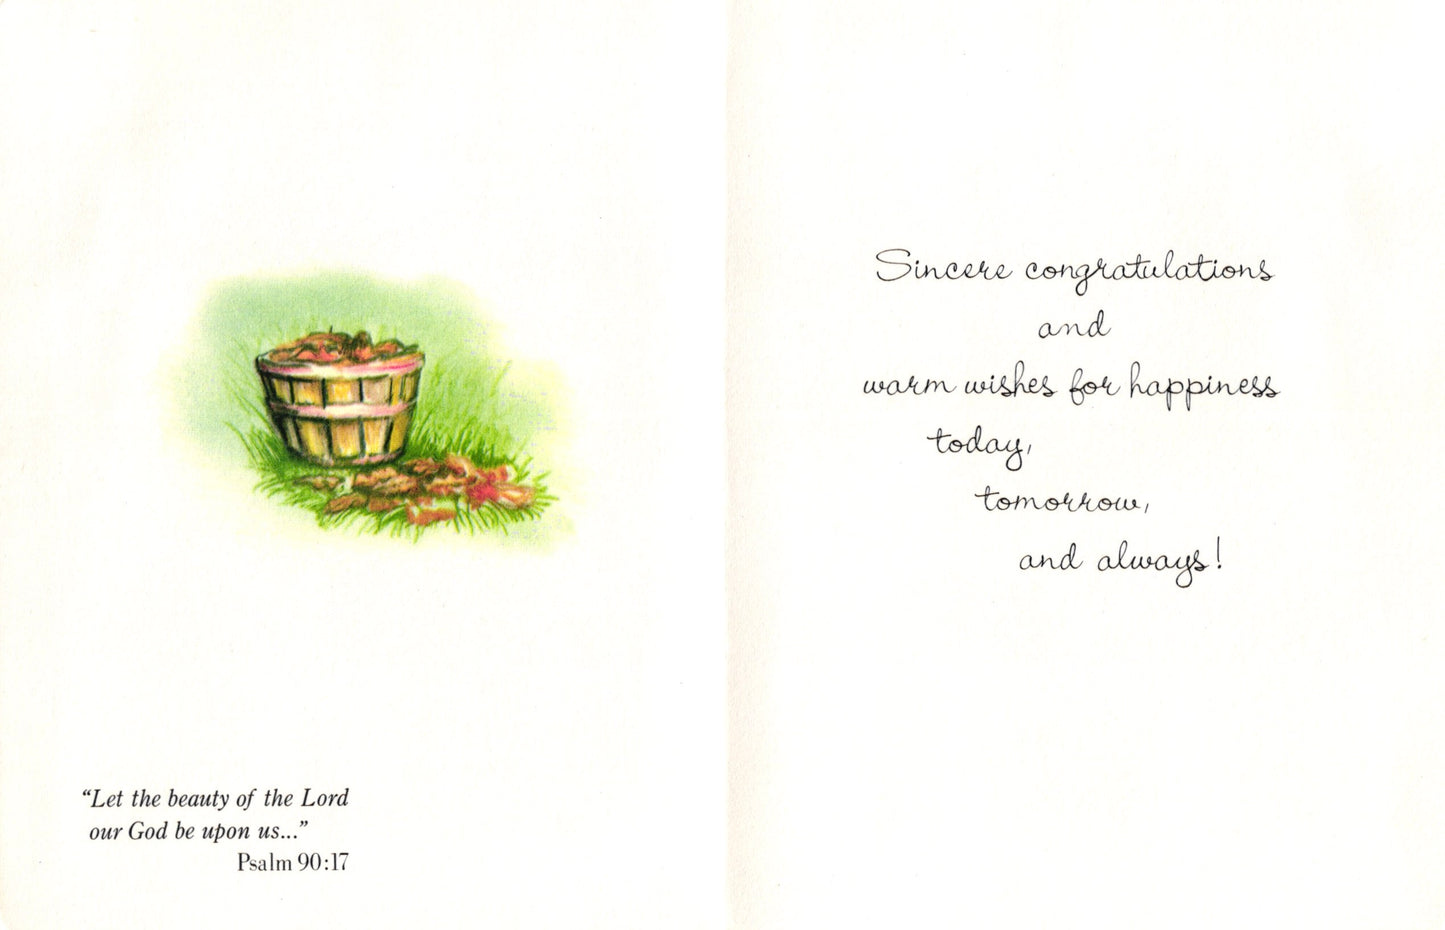 “Let the beauty of the Lord
our God be upon us...”
Psalm 90:17
Sincere congratulations
and
warm wishes for happiness
today,
tomorrow,
and always!